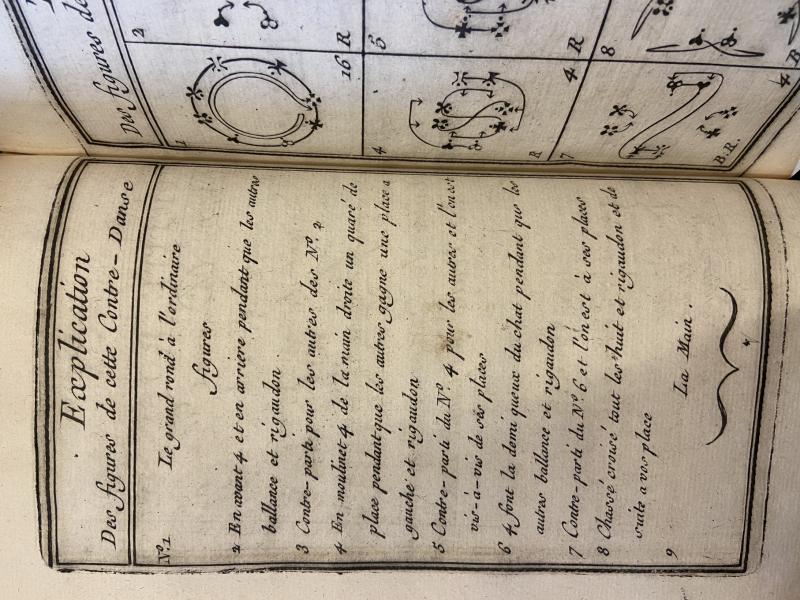 Explication
Des figures de cette Contre-Danse
Nº. 1 Le grand rond à l'ordinaire
figures
2 En avant 4 et en arriere pendant que les autres
ballance et rigaudon.
3 Contre-parti pour les autres des Nº. 2
4 En moulinet 4 de la main droite un quaré de
place pendant que les autres gagne une place a
gauche et rigaudon
5 Contre-parti du Nº. 4 pour les autres et l'on est
vis-à-vis de ses places
6 4 font la demi queux du chat pendant que les
autres ballance et rigaudon
7 Contre-parti du Nº 6 et l'on est à ses places
8 Chassé croisé tout les huit et rigaudon et de
suite a vos place
9 La Main.
Des figures de
1
2
16 R
4
R
5
4 R
7
B. R.
8
4 R